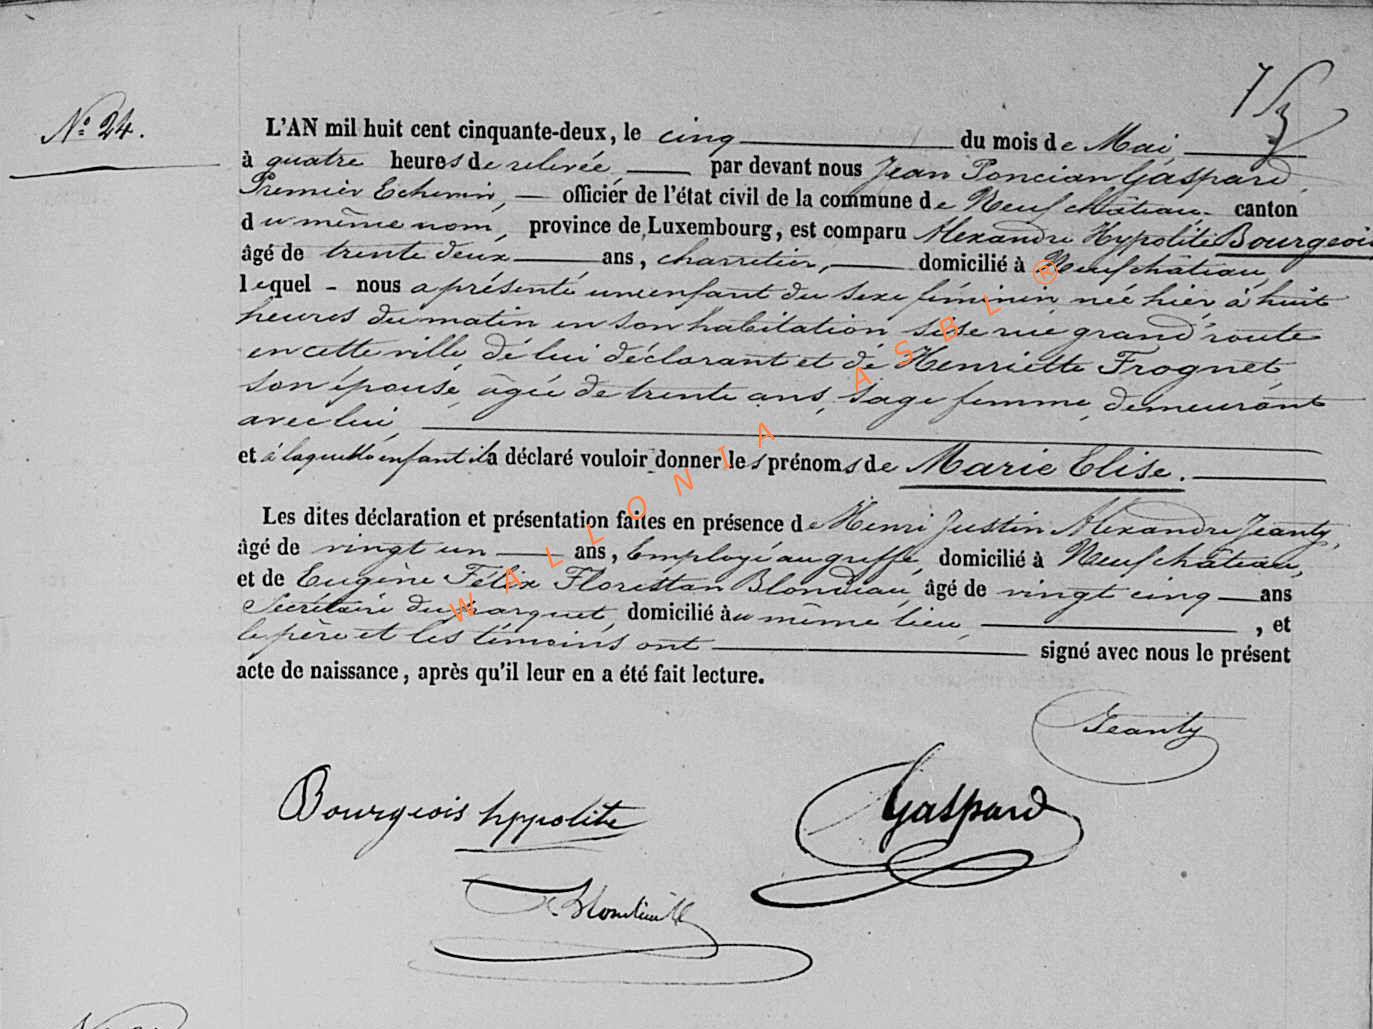 N.° 24.
L'AN mil huit cent cinquante-deux, le cinq du mois de Mai
à quatre heures de relevée, par devant nous Jean Poncian Gaspard,
Premier Echevin, officier de l'état civil de la commune de Neufchâteau canton
du même nom, province de Luxembourg, est comparu Alexandre Hypolite Bourgeois
âgé de trente deux ans, charretier, domicilié à Neufchâteau,
lequel nous a présenté un enfant du sexe féminin née hier à huit
heures du matin en son habitation sise rue grand'route
en cette ville, de lui déclarant et de Henriette Frognet,
son épouse, âgée de trente ans, sage femme, demeurant
avec lui,
et à laquelle enfant il a déclaré vouloir donner les prénoms de Marie Elise.
Les dites déclaration et présentation faites en présence de Henri Justin Alexandre Jeanty,
âgé de vingt un ans, Employé au greffe, domicilié à Neufchâteau,
et de Eugène Félix Floristan Blondiau, âgé de vingt cinq ans
Secrétaire du parquet, domicilié au même lieu, , et
le père et les témoins ont signé avec nous le présent
acte de naissance, après qu'il leur en a été fait lecture.
Jeanty
Bourgeois hppolite
Gaspard
WALLONIA ASBL ®